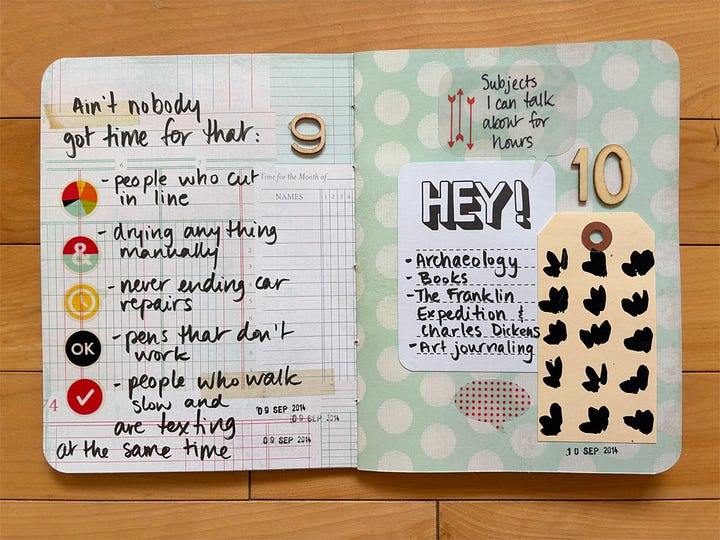 Ain't nobody
got time for that:
9
6
7
Time for the Month of
NAMES
1 2 3 4
- people who cut
in line
&
- drying anything
manually
- never ending car
repairs
OK
- pens that don't
work
- people who walk
slow and
are texting
at the same time
74
09 SEP 2014
09 SEP 2014
09 SEP 2014
Subjects
I can talk
about for
hours
10
HEY!
- Archaeology
- Books
- The Franklin
Expedition &
Charles Dickens
- Art journaling
10 SEP 2014